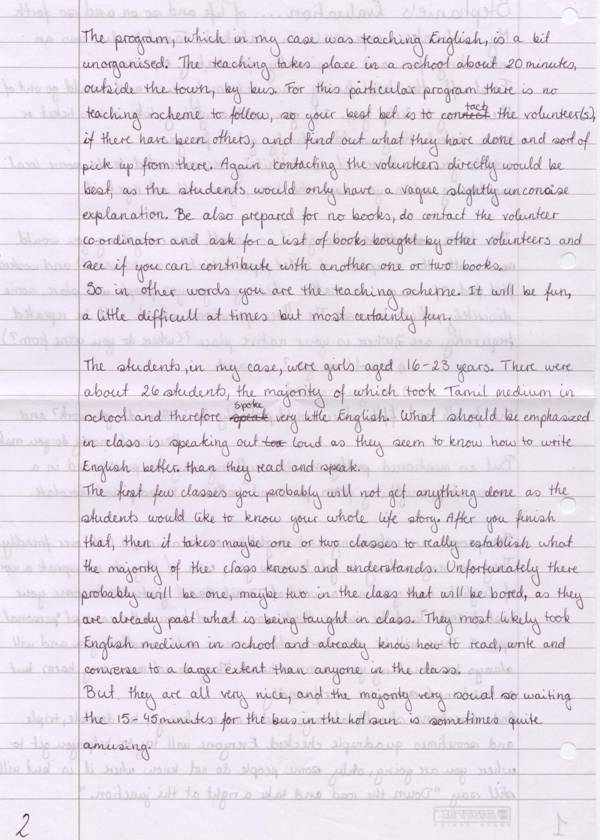 The program, which in my case was teaching English, is a bit
unorganised. The teaching takes place in a school about 20 minutes,
outside the town, by bus. For this particular program there is no
teaching scheme to follow, so your best bet is to contach the volunteer(s),
if there have been others, and find out what they have done and sort of
pick up from there. Again contacting the volunteers directly would be
best, as the students would only have a vague slightly unconcise
explanation. Be also prepared for no books, do contact the volunteer
co-ordinator and ask for a list of books bought by other volunteers and
see if you can contribute with another one or two books.
So in other words you are the teaching scheme. It will be fun,
a little difficult at times but most certainly fun.
The students, in my case, were girls aged 16-23 years. There were
about 26 students, the majority of which took Tamil medium in
school and therefore spoke very little English. What should be emphasized
in class is speaking out loud as they seem to know how to write
English better than they read and speak.
The first few classes you probably will not get anything done as the
students would like to know your whole life story. After you finish
that, then it takes maybe one or two classes to really establish what
the majority of the class knows and understands. Unfortunately there
probably will be one, maybe two in the class that will be bored, as they
are already past what is being taught in class. They most likely took
English medium in school and already know how to read, write and
converse to a larger extent than anyone in the class.
But they are all very nice, and the majority very social so waiting
the 15-45 minutes for the bus in the hot sun is sometimes quite
amusing.
2